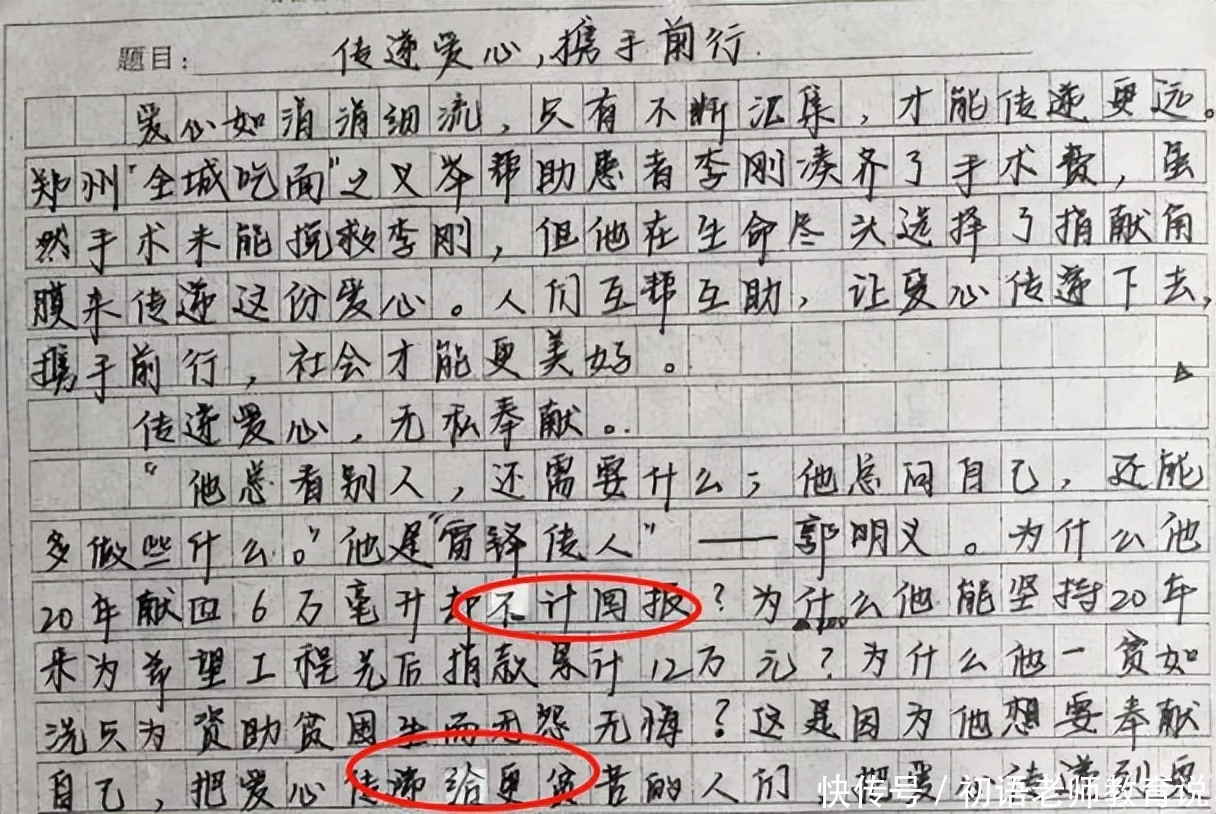 题目：传递爱心，携手前行.
爱心如涓涓细流，只有不断汇集，才能传递更远。
郑州“全城吃面”之义举帮助患者李刚凑齐了手术费，虽
然手术未能挽救李刚，但他在生命尽头选择了捐献角
膜来传递这份爱心。人们互帮互助，让爱心传递下去，
携手前行，社会才能更美好。
传递爱心，无私奉献。
“他总看别人，还需要什么；他总问自己，还能
多做些什么。”他是“雷锋传人”——郭明义。为什么他
20年献血6万毫升却不计回报？为什么他能坚持20年
来为希望工程先后捐款累计12万元？为什么他一贫如
洗只为资助贫困生而无怨无悔？这是因为他想要奉献
自己，把爱心传递给更贫苦的人们，把爱心传递到更
快传号/初语老师教育说